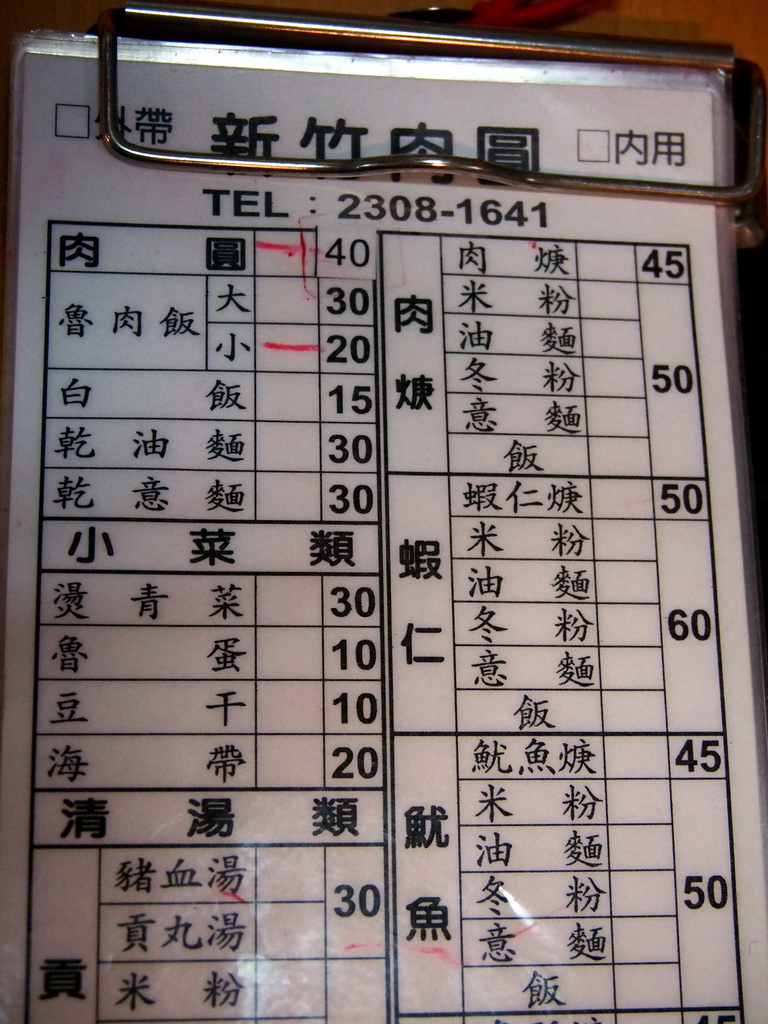 □外帶 新竹肉圓 □內用
TEL：2308-1641
肉圓 40
魯肉飯 大 30
小 20
白飯 15
乾油麵 30
乾意麵 30
小菜類
燙青菜 30
魯蛋 10
豆干 10
海帶 20
清湯類
貢
豬血湯 30
貢丸湯
米粉
肉焿
肉焿 45
米粉 50
油麵
冬粉
意麵
飯
蝦仁
蝦仁焿 50
米粉 60
油麵
冬粉
意麵
飯
魷魚
魷魚焿 45
米粉 50
油麵
冬粉
意麵
飯
45